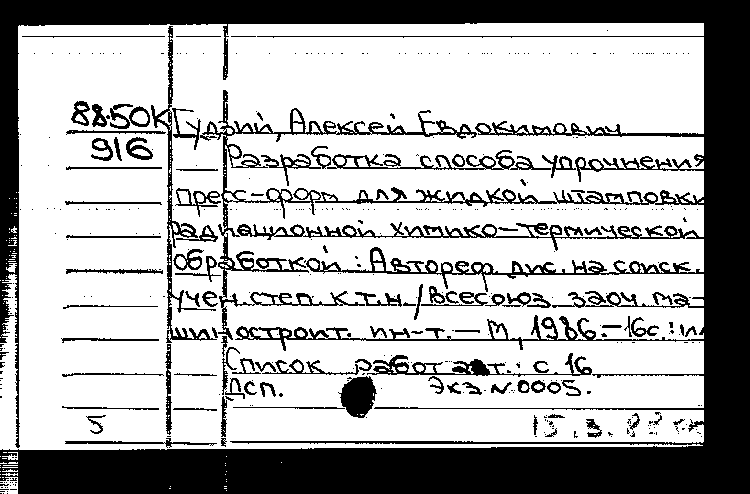 88-50К Гудзий, Алексей Евдокимович
916 Разработка способа упрочнения
пресс-форм для жидкой штамповки
радиационной химико-термической
обработкой : Автореф. дис. на соиск.
учен. степ. к.т.н. / Всесоюз. заоч. ма-
шиностроит. ин-т. - М., 1986. - 16с. : ил
Список работ авт.: с. 16.
ДСП. Экз. N 0005.
5 15.3.88